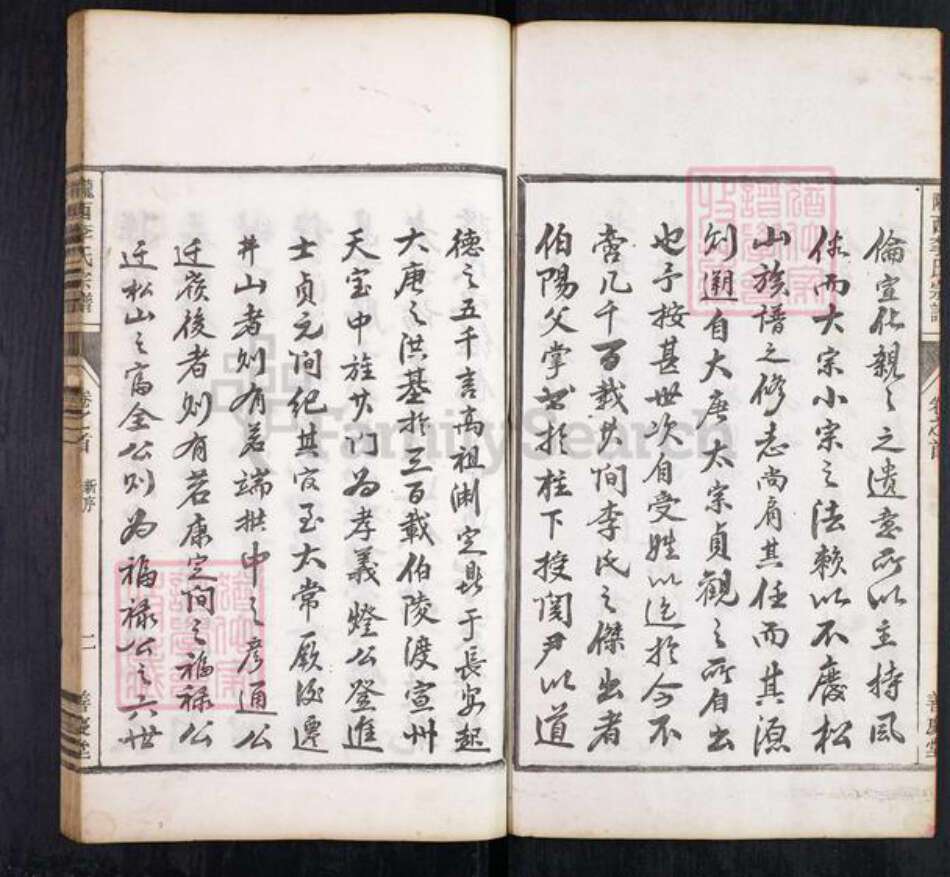 倫宣化親之之遺意所以主持風
俗而大宗小宗之法賴以不廢松
山族譜之修志尚肩其任而其源
則遡自大唐太宗貞觀之所自出
也予按其世次自受姓以迄於今不
啻几千百載其间李氏之傑出者
伯陽父掌書於柱下授関尹以道
德之五千言高祖渊定鼎于長安起
大唐之洪基於三百載伯陵渡宣州
天宝中旌其门为孝義燈公登進
士貞元间纪其官至大常厥後遷
井山者则有若端拱中之彦通公
迁嶺後者则有若康定间之福禄公
迁松山之富全公则为福禄公之六世
隴西李氏宗譜
卷之首
新序
二
善慶堂
FamilySearch